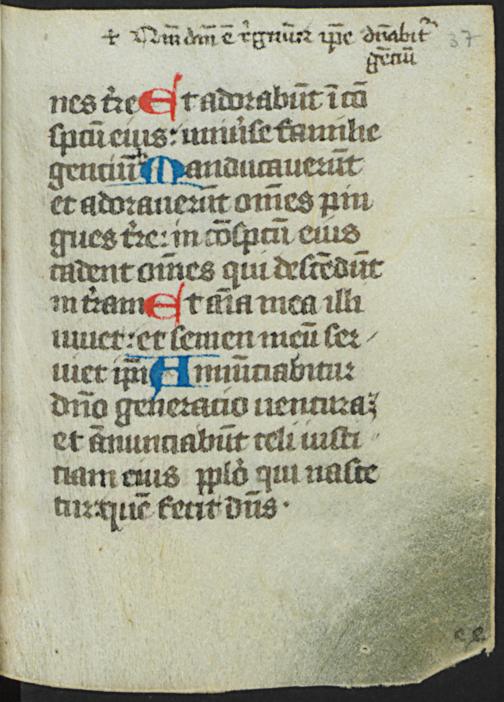 + Qm̄ dn̄i ē rᷓgnūꝫ ip̄e dn̄abit᷑ 37
gētiū
nes tr̄e Et adorabūt ī cō
spcū eius: uniūse familie
gentiū Manducauerūt
et adorauerūt om̄es pin
gues tr̄e: in cōspcū eius
cadent om̄es qui descēdūt
in tr̄am Et aīa mea illi
uiuet: et semen meū ser
uiet ip̄i Annūciabitur
dn̄o generacio uentura
et ānunciabūt celi iusti
tiam eius pp̄lo qui nasce
tur: quē fecit dn̄s·